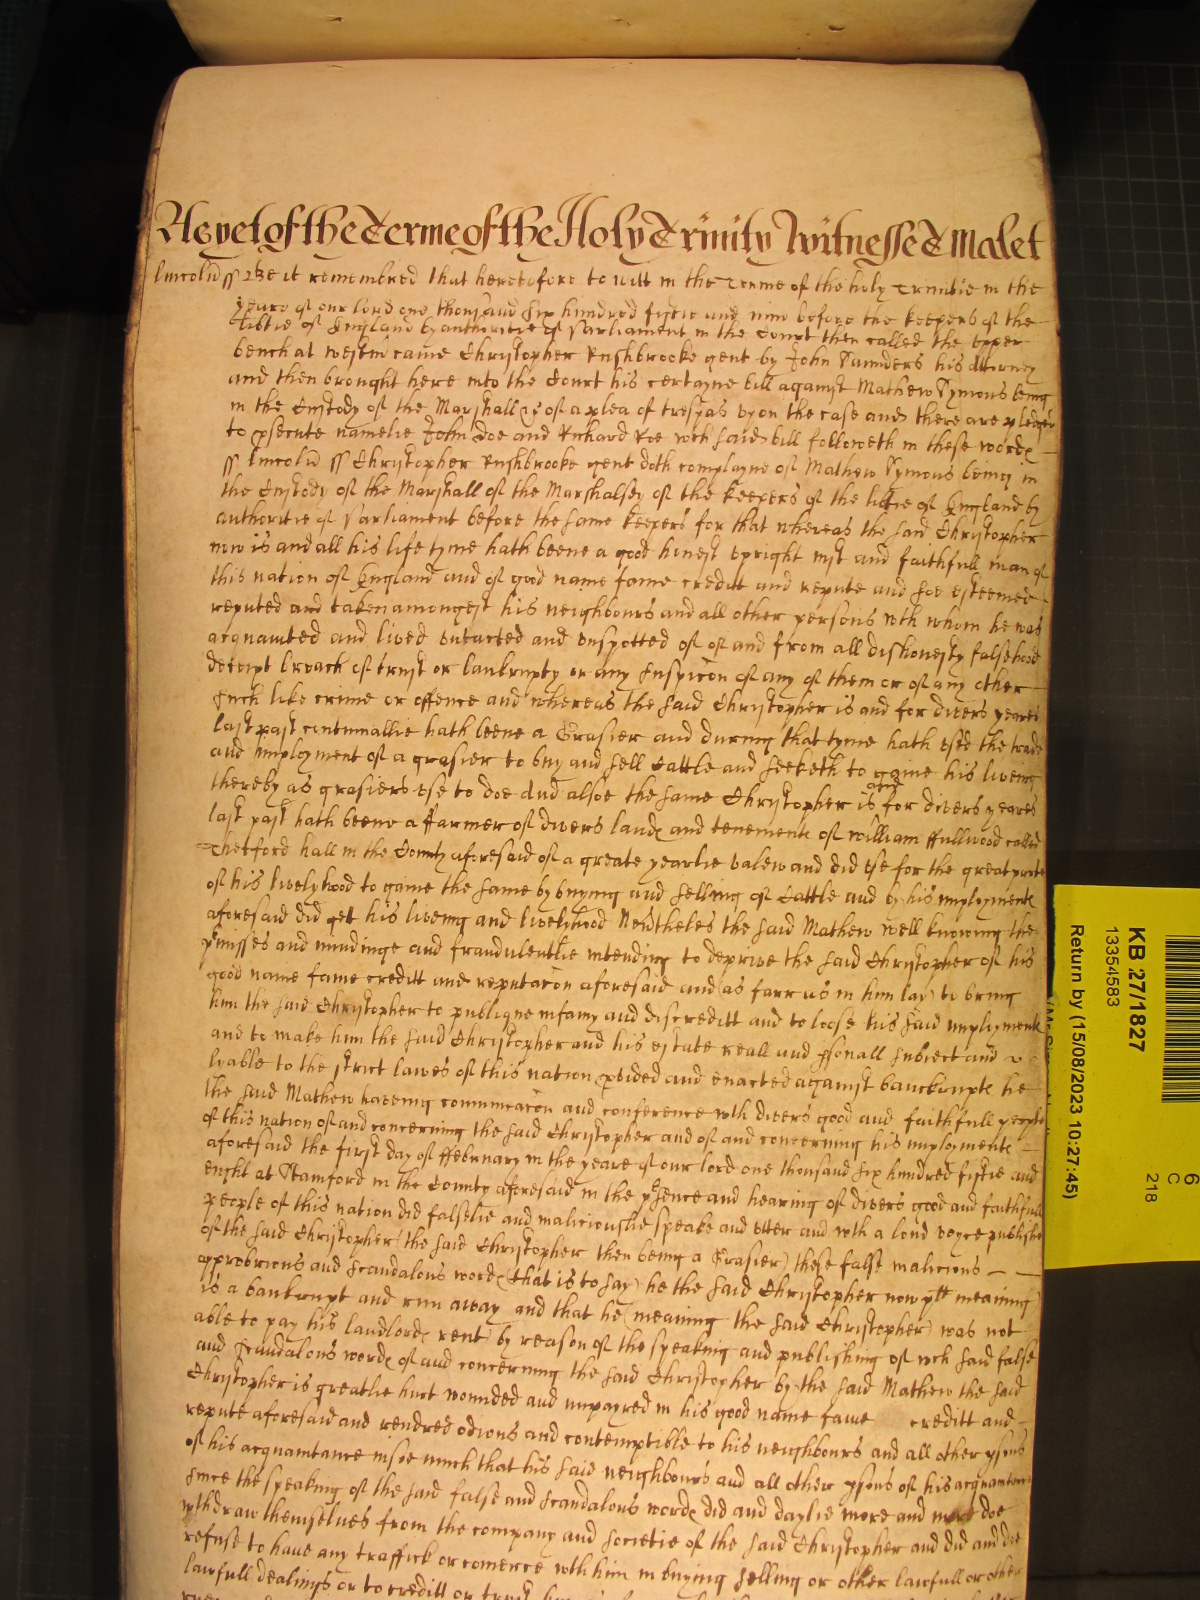 As yet of the Terme of the Holy Trinity Witnesse T Malet
Lincoln ss Be it remembred that heretofore to witt in the Terme of the holy Trinitie in the
yeare of our lord one thousand six hundred fiftie and nine before the keepers of the
libtie of England by authoritie of Parliament in the Court then called the upper
bench at Westm came Christopher Rushbrooke gent by John Saunders his Attorney
and then brought here into the Court his certayne bill against Mathew Symons being
in the Custody of the Marshall &c of a plea of trespas upon the case and there are pledges
to psecute namelie John Doe and Richard Roe wch said bill followeth in these words
ss Lincoln ss Christopher Rushbrooke gent doth complayne of Mathew Symons being in
the Custody of the Marshall of the Marshalsey of the keepers of the libtie of England by
authoritie of Parliament before the same keepers for that whereas the said Christopher
now is and all his life tyme hath beene a good honest upright iust and faithfull man of
this nation of England and of good name fame creditt and repute and soe esteemed
reputed and taken amongest his neighbours and all other persons wth whom he was
acquainted and lived untacted and unspotted of of and from all dishonesty falsehood
deceipt breach of trust or bankrupty or any suspicon of any of them or of any other
such like crime or offence and whereas the said Christopher is and for divers yeares
last past continuallie hath beene a Grasier and during that tyme hath used the trade
and imployment of a grasier to buy and sell Cattle and seeketh to gaine his liveing
thereby as grasiers use to doe And alsoe the same Christopher is and for divers yeares
last past hath beene a ffarmer of divers lands and tenements of William ffullwood called
Thetford hall in the County aforesaid of a greate yearlie valew and did use for the great parte
of his livelyhood to gaine the same by buying and selling of Cattle and by his imployments
aforesaid did get his liveing and livelyhood Nevtheles the said Mathew well knowing the
pmisses and mindinge and fraudulentlie intending to deprive the said Christopher of his
good name fame creditt and reputacon aforesaid and (as farr as in him lay) to bring
him the said Christopher to publique infamy and discreditt and to loose his said imployments
and to make him the said Christopher and his estate reall and psonall subiect and
lyable to the strict lawes of this nation pvided and enacted against banckrupts he
the said Mathew haveing comunicacon and conference wth divers good and faithfull people
of this nation of and concerning the said Christopher and of and concerning his imployments
aforesaid the first day of ffebruary in the yeare of our lord one thousand six hundred fiftie and
eight at Stamford in the County aforesaid in the psence and hearing of divers good and faithfull
people of this nation did falselie and maliciouslie speake and utter and wth a loud voyce publishe
of the said Christopher (the said Christopher then being a Grasier) these false malicious
approbrious and scandalous words (that is to say) he the said Christopher now plt meaning)
is a bankrupt and run away and that he (meaning the said Christopher) was not
able to pay his landlords rent) by reason of the speaking and publishing of wch said false
and scandalous words of and concerning the said Christopher by the said Mathew the said
Christopher is greatlie hurt wounded and impayred in his good name fame creditt and
repute aforesaid and rendred odious and contemptible to his neighbours and all other psons
of his acquaintance insoe much that his said neighbours and all other psons of his acquaintance
since the speaking of the said false and scandalous words did and daylie more and more doe
wthdraw themselves from the company and societie of the said Christopher and did and doe
refuse to have any traffick or comerce wth him in buying selling or other lawfull or other
lawfull dealings or to creditt or trust him
KB 27/1827
13354583
Return by (15/08/2023 10:27:45)
6
C
218